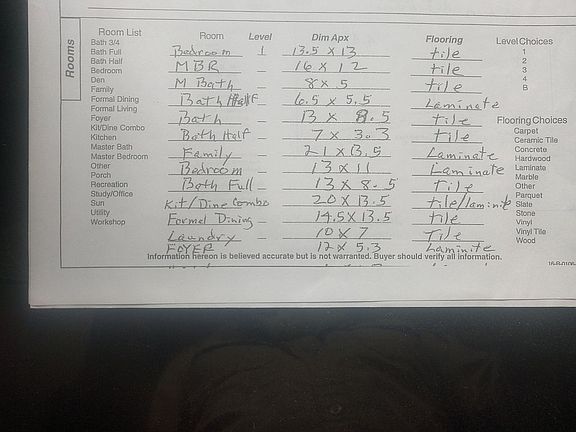 Rooms
Room List Room Level Dim Apx Flooring Level Choices
Bath 3/4
Bath Full
Bath Half
Bedroom
Den
Family
Formal Dining
Formal Living
Foyer
Kit/Dine Combo
Kitchen
Master Bath
Master Bedroom
Other
Porch
Recreation
Study/Office
Sun
Utility
Workshop
Bedroom 1 13.5 x 13 tile
MBR 16 x 12 tile
M Bath 8 x 5 tile
Bath Half 6.5 x 5.5 Laminate
Bath 13 x 8.5 tile
Bath Half 7 x 3.3 tile
Family 21 x 13.5 Laminate
Bedroom 13 x 11 Laminate
Bath Full 13 x 8.5 Tile
Kit/Dine Combo 20 x 13.5 tile/laminate
Formal Dining 14.5 x 13.5 tile
Laundry 10 x 7 Tile
FOYER 12 x 5.3 Laminite
1
2
3
4
B
Flooring Choices
Carpet
Ceramic Tile
Concrete
Hardwood
Laminate
Marble
Other
Parquet
Slate
Stone
Vinyl
Vinyl Tile
Wood
Information hereon is believed accurate but is not warranted. Buyer should verify all information.